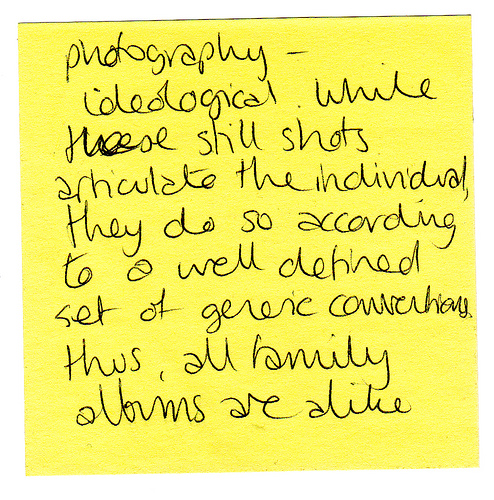 photography –
ideological. while
these still shots
articulate the individual,
they do so according
to a well defined
set of generic conventions.
thus, all family
albums are alike